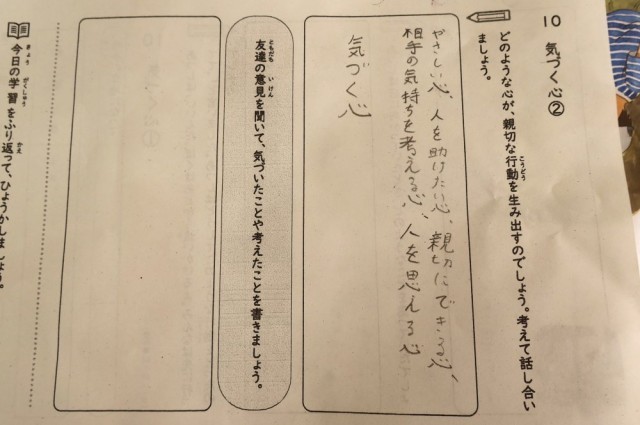 10 気づく心②
どのような心が、親切な行動を生み出すのでしょう。考えて話し合い
ましょう。
やさしい心、人を助けたい心、親切にできる心、
相手の気持ちを考える心、人を思える心
気づく心
友達の意見を聞いて、気づいたことや考えたことを書きましょう。
今日の学習をふり返って、ひょうかしましょう。